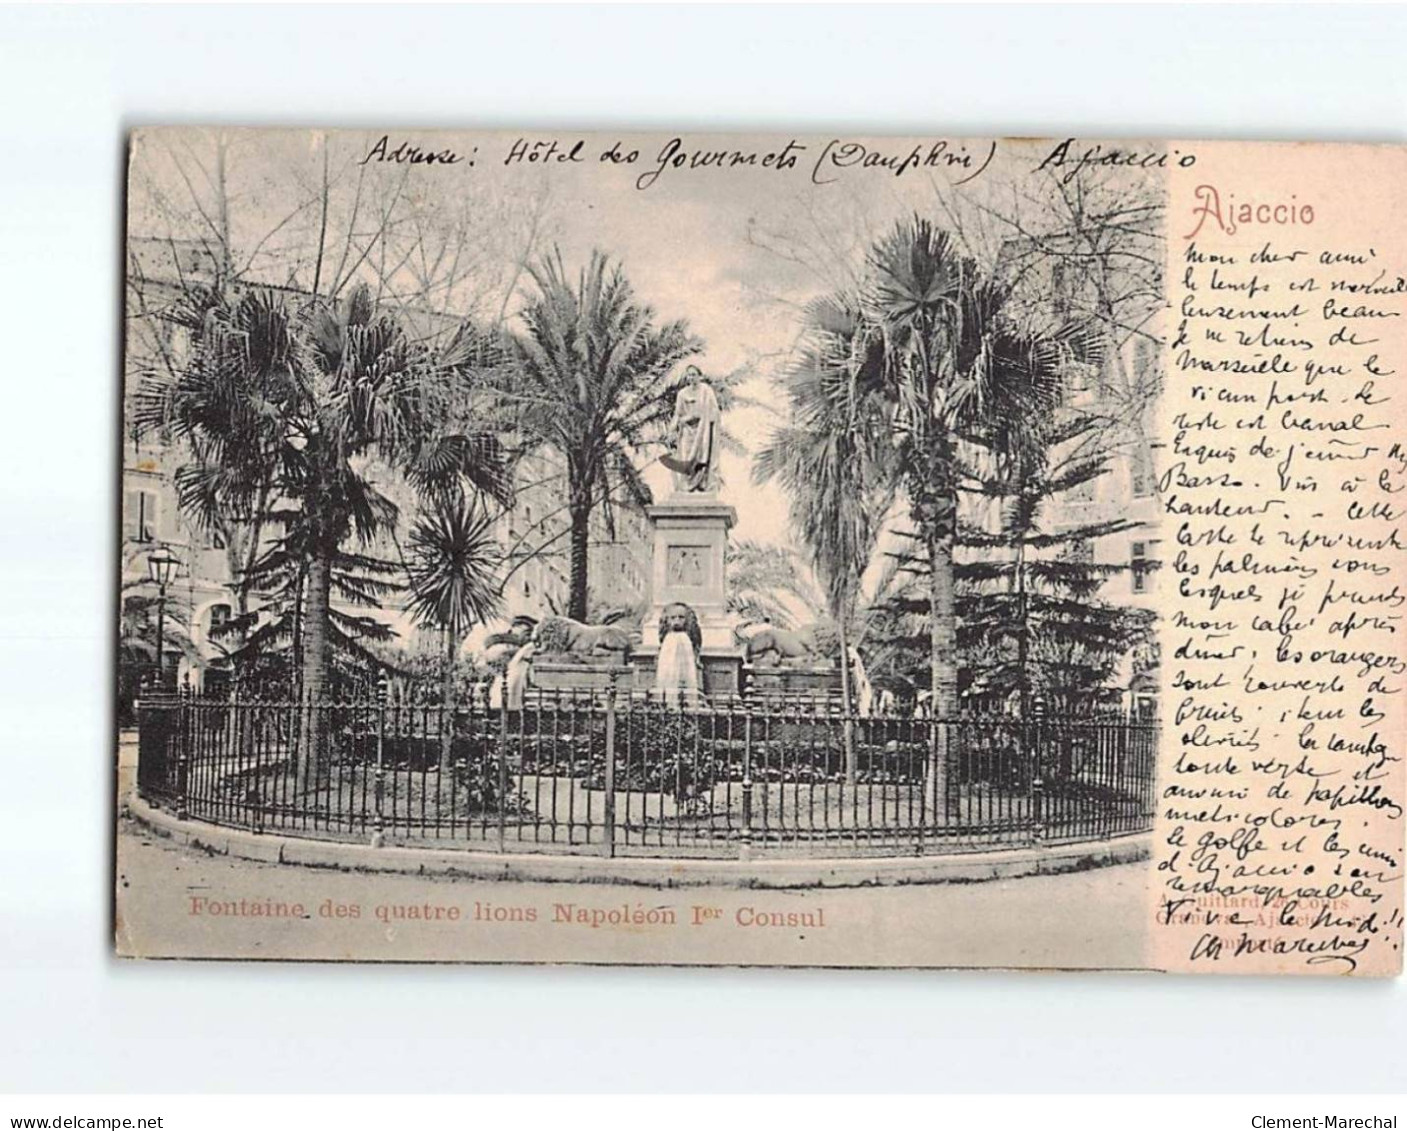 Adresse : Hôtel des Gourmets (Dauphin) Ajaccio
Ajaccio
Mon cher ami
le temps est merveil
leusement beau
Je ne retiens de
Marseille que le
vieux port. Le
reste est banal
Esquis déjeuner
Basso. Vins à la
hauteur. - Cette
carte te représente
les palmiers sous
lesquels je prends
mon café après
dîner. Les orangers
sont couverts de
fruits ; item les
oliviers. La campagne
toute verte et
de papillons
multicolores.
Le golfe et les
d'Ajaccio sont
remarquables
Vive le midi !!
Fontaine des quatre lions Napoléon Ier Consul
Guittard, Cours
Grandval, Ajaccio
delcampe.net
Clement-Marechal